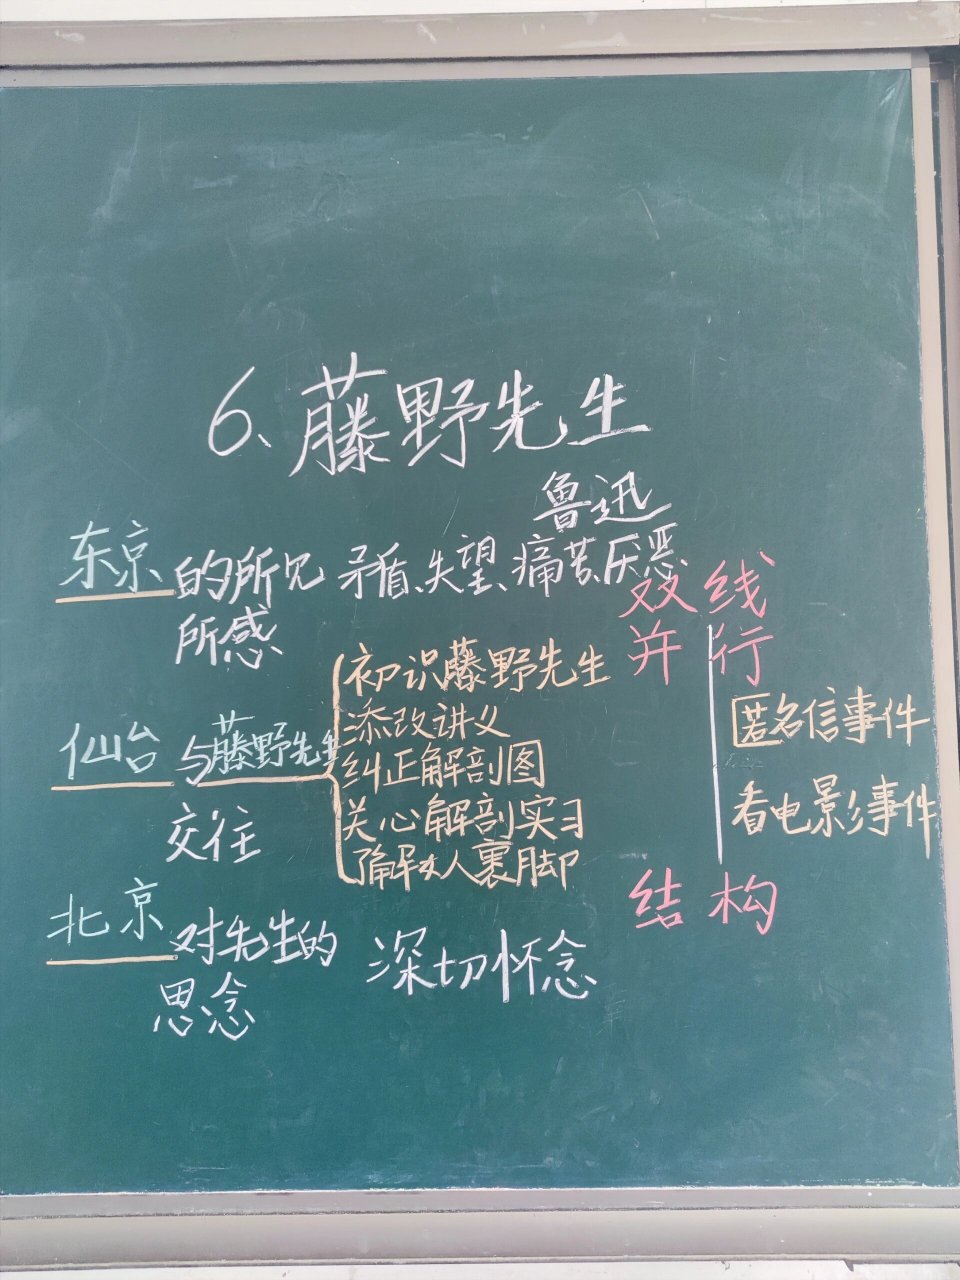 6、藤野先生
鲁迅
东京的所见 矛盾、失望、痛苦、厌恶
所感
双线
并行
初识藤野先生
添改讲义
仙台与藤野先生
交往
纠正解剖图
关心解剖实习
了解女人裹脚
匿名信事件
看电影事件
结构
北京对先生的
思念
深切怀念